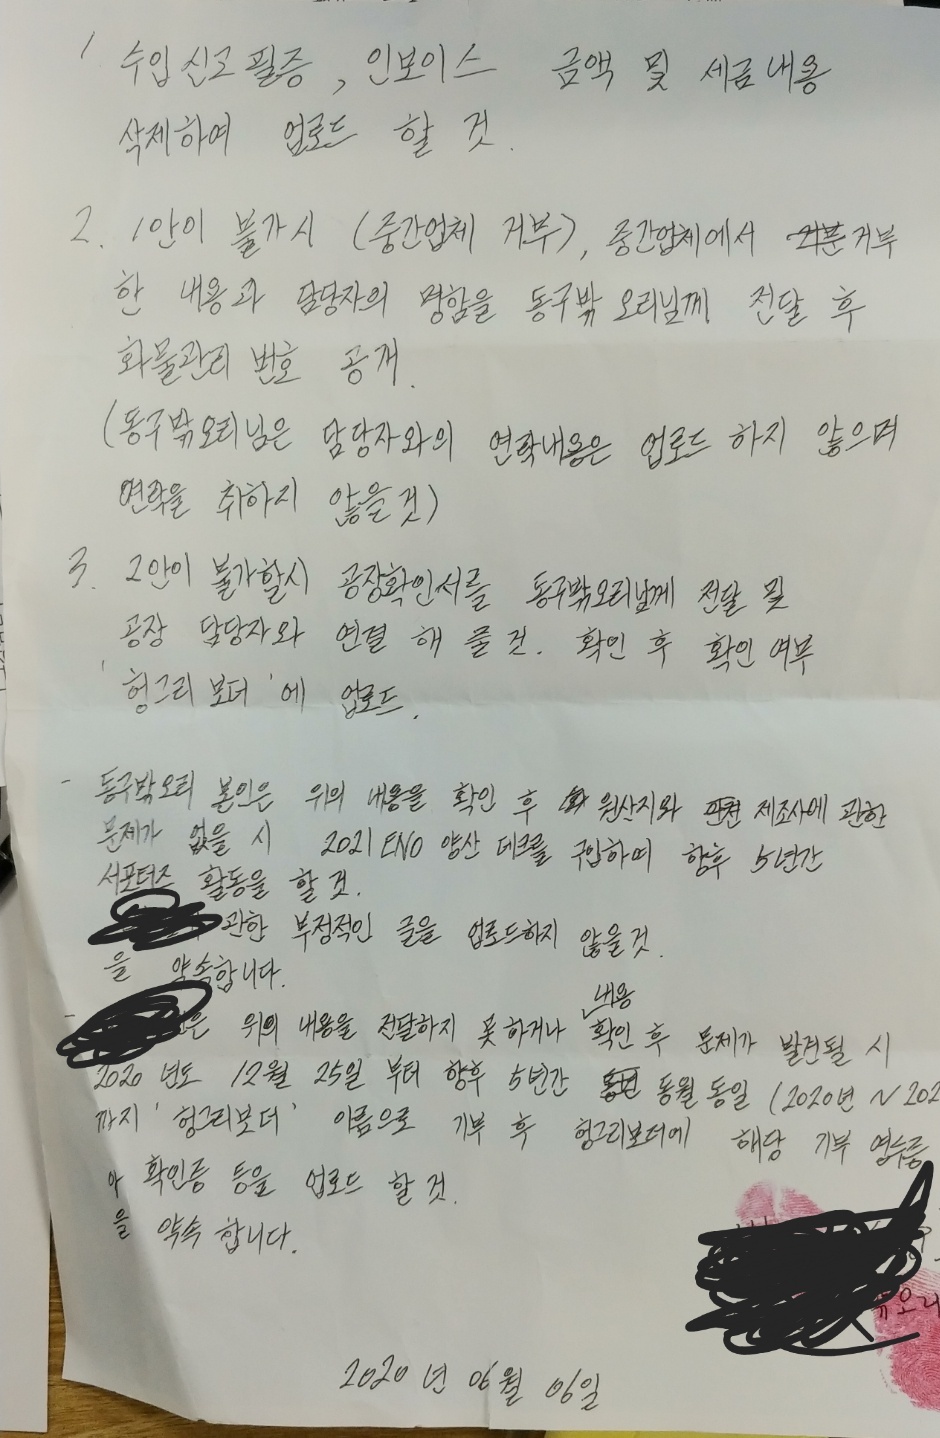 1 수입신고필증, 인보이스 금액 및 세금내용
삭제하여 업로드 할 것.
2. 1안이 불가시 (중간업체 거부), 중간업체에서 거부
한 내용과 담당자의 명함을 동구밖오리님께 전달 후
화물관리 번호 공개.
(동구밖오리님은 담당자와의 연락내용은 업로드 하지 않으며
연락을 취하지 않을것)
3. 2안이 불가할시 공장확인서를 동구밖오리님께 전달 및
공장 담당자와 연결 해 줄것. 확인 후 확인 여부
'헝그리보더'에 업로드.
- 동구밖오리 본인은 위의 내용을 확인 후 원산지와 제조사에 관한
문제가 없을 시 2021 ENO 양산 데크를 구입하며 향후 5년간
서포터즈 활동을 할 것.
관한 부정적인 글을 업로드하지 않을것.
을 약속합니다.
내용
- 은 위의 내용을 전달하지 못하거나 확인 후 문제가 발견될 시
2020 년도 12월 25일 부터 향후 5년간 동월동일 (2020년 ~ 202
까지 '헝그리보더' 이름으로 기부 후 헝그리보더에 해당 기부 영수증
확인증 등을 업로드 할 것.
을 약속 합니다.
오리
2020 년 06월 06일